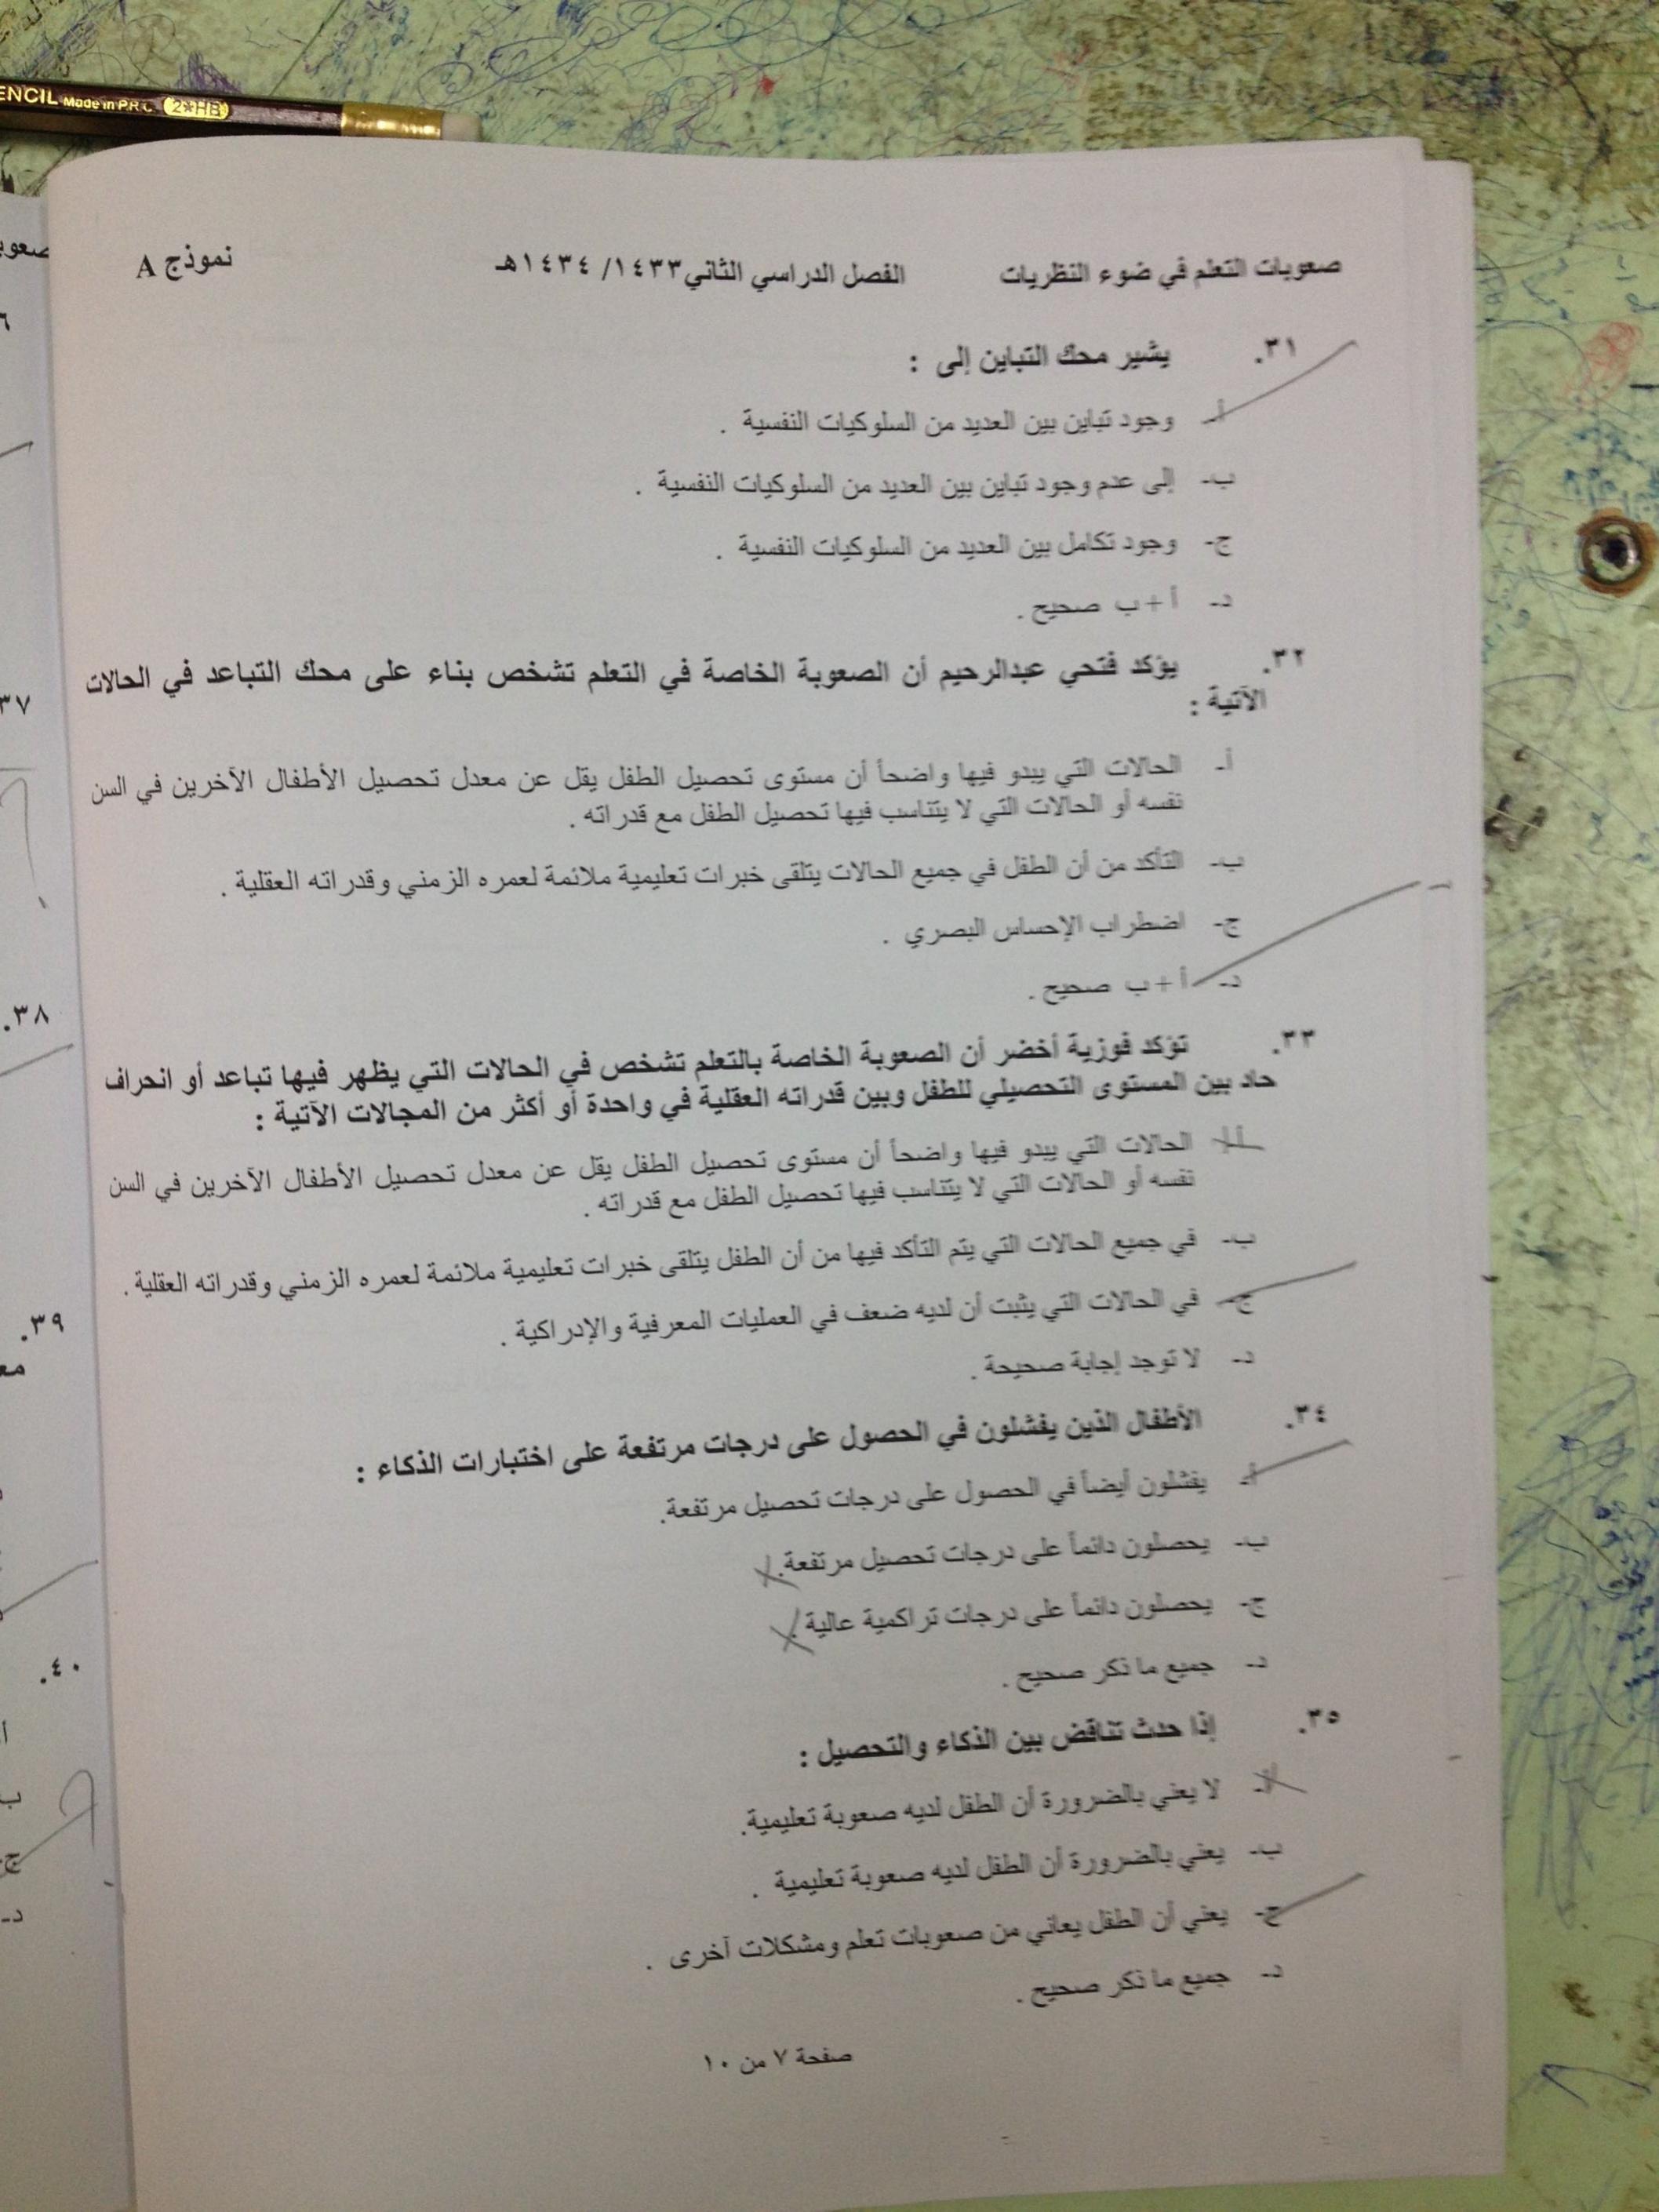 ENCIL Made in P.R.C. 2*HB
صعوبات التعلم في ضوء النظريات الفصل الدراسي الثاني ١٤٣٣/ ١٤٣٤هـ نموذج A
٣١. يشير محك التباين إلى :
أ- وجود تباين بين العديد من السلوكيات النفسية .
ب- إلى عدم وجود تباين بين العديد من السلوكيات النفسية .
ج- وجود تكامل بين العديد من السلوكيات النفسية .
د- أ + ب صحيح .
٣٢. يؤكد فتحي عبدالرحيم أن الصعوبة الخاصة في التعلم تشخص بناء على محك التباعد في الحالات
الآتية :
أ- الحالات التي يبدو فيها واضحاً أن مستوى تحصيل الطفل يقل عن معدل تحصيل الأطفال الآخرين في السن
نفسه أو الحالات التي لا يتناسب فيها تحصيل الطفل مع قدراته .
ب- التأكد من أن الطفل في جميع الحالات يتلقى خبرات تعليمية ملائمة لعمره الزمني وقدراته العقلية .
ج- اضطراب الإحساس البصري .
د- أ + ب صحيح .
٣٣. تؤكد فوزية أخضر أن الصعوبة الخاصة بالتعلم تشخص في الحالات التي يظهر فيها تباعد أو انحراف
حاد بين المستوى التحصيلي للطفل وبين قدراته العقلية في واحدة أو أكثر من المجالات الآتية :
أ- الحالات التي يبدو فيها واضحاً أن مستوى تحصيل الطفل يقل عن معدل تحصيل الأطفال الآخرين في السن
نفسه أو الحالات التي لا يتناسب فيها تحصيل الطفل مع قدراته .
ب- في جميع الحالات التي يتم التأكد فيها من أن الطفل يتلقى خبرات تعليمية ملائمة لعمره الزمني وقدراته العقلية .
ج- في الحالات التي يثبت أن لديه ضعف في العمليات المعرفية والإدراكية .
د- لا توجد إجابة صحيحة .
٣٤. الأطفال الذين يفشلون في الحصول على درجات مرتفعة على اختبارات الذكاء :
أ- يفشلون أيضاً في الحصول على درجات تحصيل مرتفعة.
ب- يحصلون دائماً على درجات تحصيل مرتفعة.
ج- يحصلون دائماً على درجات تراكمية عالية .
د- جميع ما ذكر صحيح .
٣٥. إذا حدث تناقض بين الذكاء والتحصيل :
أ- لا يعني بالضرورة أن الطفل لديه صعوبة تعليمية.
ب- يعني بالضرورة أن الطفل لديه صعوبة تعليمية .
ج- يعني أن الطفل يعاني من صعوبات تعلم ومشكلات آخرى .
د- جميع ما ذكر صحيح .
صفحة ٧ من ١٠
٣٧
٣٨.
٣٩.
٤٠.
ب
ج-
د-